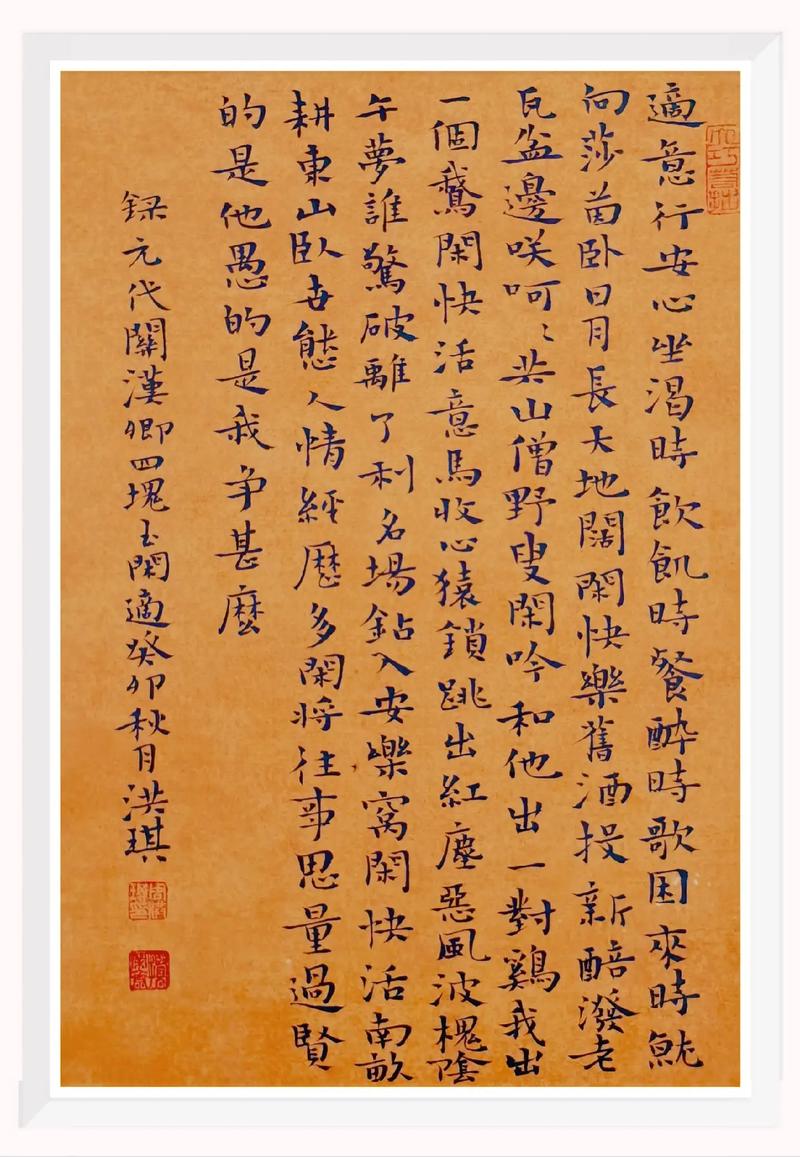 適意行安心坐渴時飲飢時餐醉時歌困來時就
向莎茵卧日月長天地闊閑快樂舊酒投新醅潑老
瓦盆邊咲呵〻共山僧野叟閑吟和他出一對鷄我出
一個鵝閑快活意馬收心猿鎖跳出紅塵惡風波槐陰
午夢誰驚破離了利名場鉆入安樂窩閑快活南畝
耕東山臥世態人情經歷多閑將往事思量過賢
的是他愚的是我争甚麼
録元代關漢卿四塊玉閑適癸卯秋月洪琪